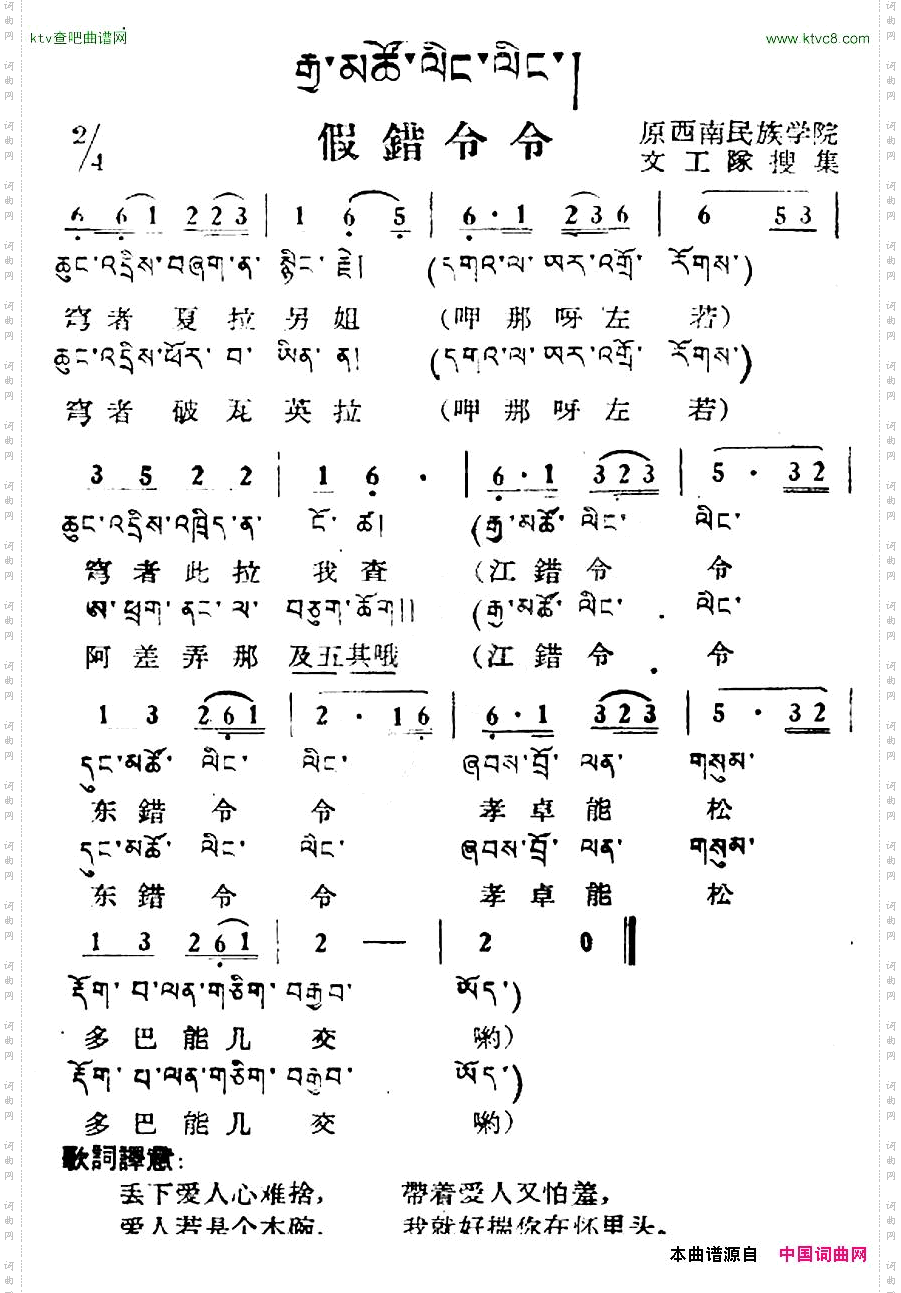 ktv查吧曲谱网 www.ktvc8.com
རྒྱ་མཚོ་ལིང་ལིང་།
2/4 假錯令令 原西南民族学院
文工隊搜集
6 6 1 2 2 3 | 1 6 5 | 6 · 1 2 3 6 | 6 5 3 |
ཆུང་འདྲིས་བཞག་ན་ སྙིང་རྗེ། (དགའ་ལ་ ཨར་འགྲོ་ རོགས་)
穹者 夏拉另姐 (呷那呀左 若)
ཆུང་འདྲིས་ཕོར་ བ་ ཡིན་ ན། (དགའ་ལ་ ཨར་འགྲོ་ རོགས་)
穹者 破瓦英拉 (呷那呀左 若)
3 5 2 2 | 1 6 · | 6 · 1 3 2 3 | 5 · 3 2 |
ཆུང་འདྲིས་འཁྲིད་ན་ ངོ་ ཚ། (རྒྱ་མཚོ་ ལིང་ ལིང་
穹者此拉 我查 (江錯令 令
ཨ་ ཕྲག་ ནང་ ལ་ བཅུག་ཆོག།། (རྒྱ་མཚོ་ ལིང་ ལིང་
阿差弄那 及五其哦 (江錯令 令
1 3 2 6 1 | 2 · 1 6 | 6 · 1 3 2 3 | 5 · 3 2 |
དུང་མཚོ་ ལིང་ ལིང་ ཞབས་བྲོ་ ལན་ གསུམ་
东錯令 令 孝卓能 松
དུང་མཚོ་ ལིང་ ལིང་ ཞབས་བྲོ་ ལན་ གསུམ་
东錯令 令 孝卓能 松
1 3 2 6 1 | 2 — | 2 0 ‖
རྡོག་ པ་ལན་གཅིག་ བརྒྱབ་ ཨོད་)
多巴能几 交 喲)
རྡོག་ པ་ལན་གཅིག་ བརྒྱབ་ ཨོད་)
多巴能几 交 喲)
歌詞譯意:
丢下爱人心难捨, 帶着愛人又怕羞,
爱人若是个木碗, 我就好揣你在怀里头。
本曲谱源自 中国词曲网